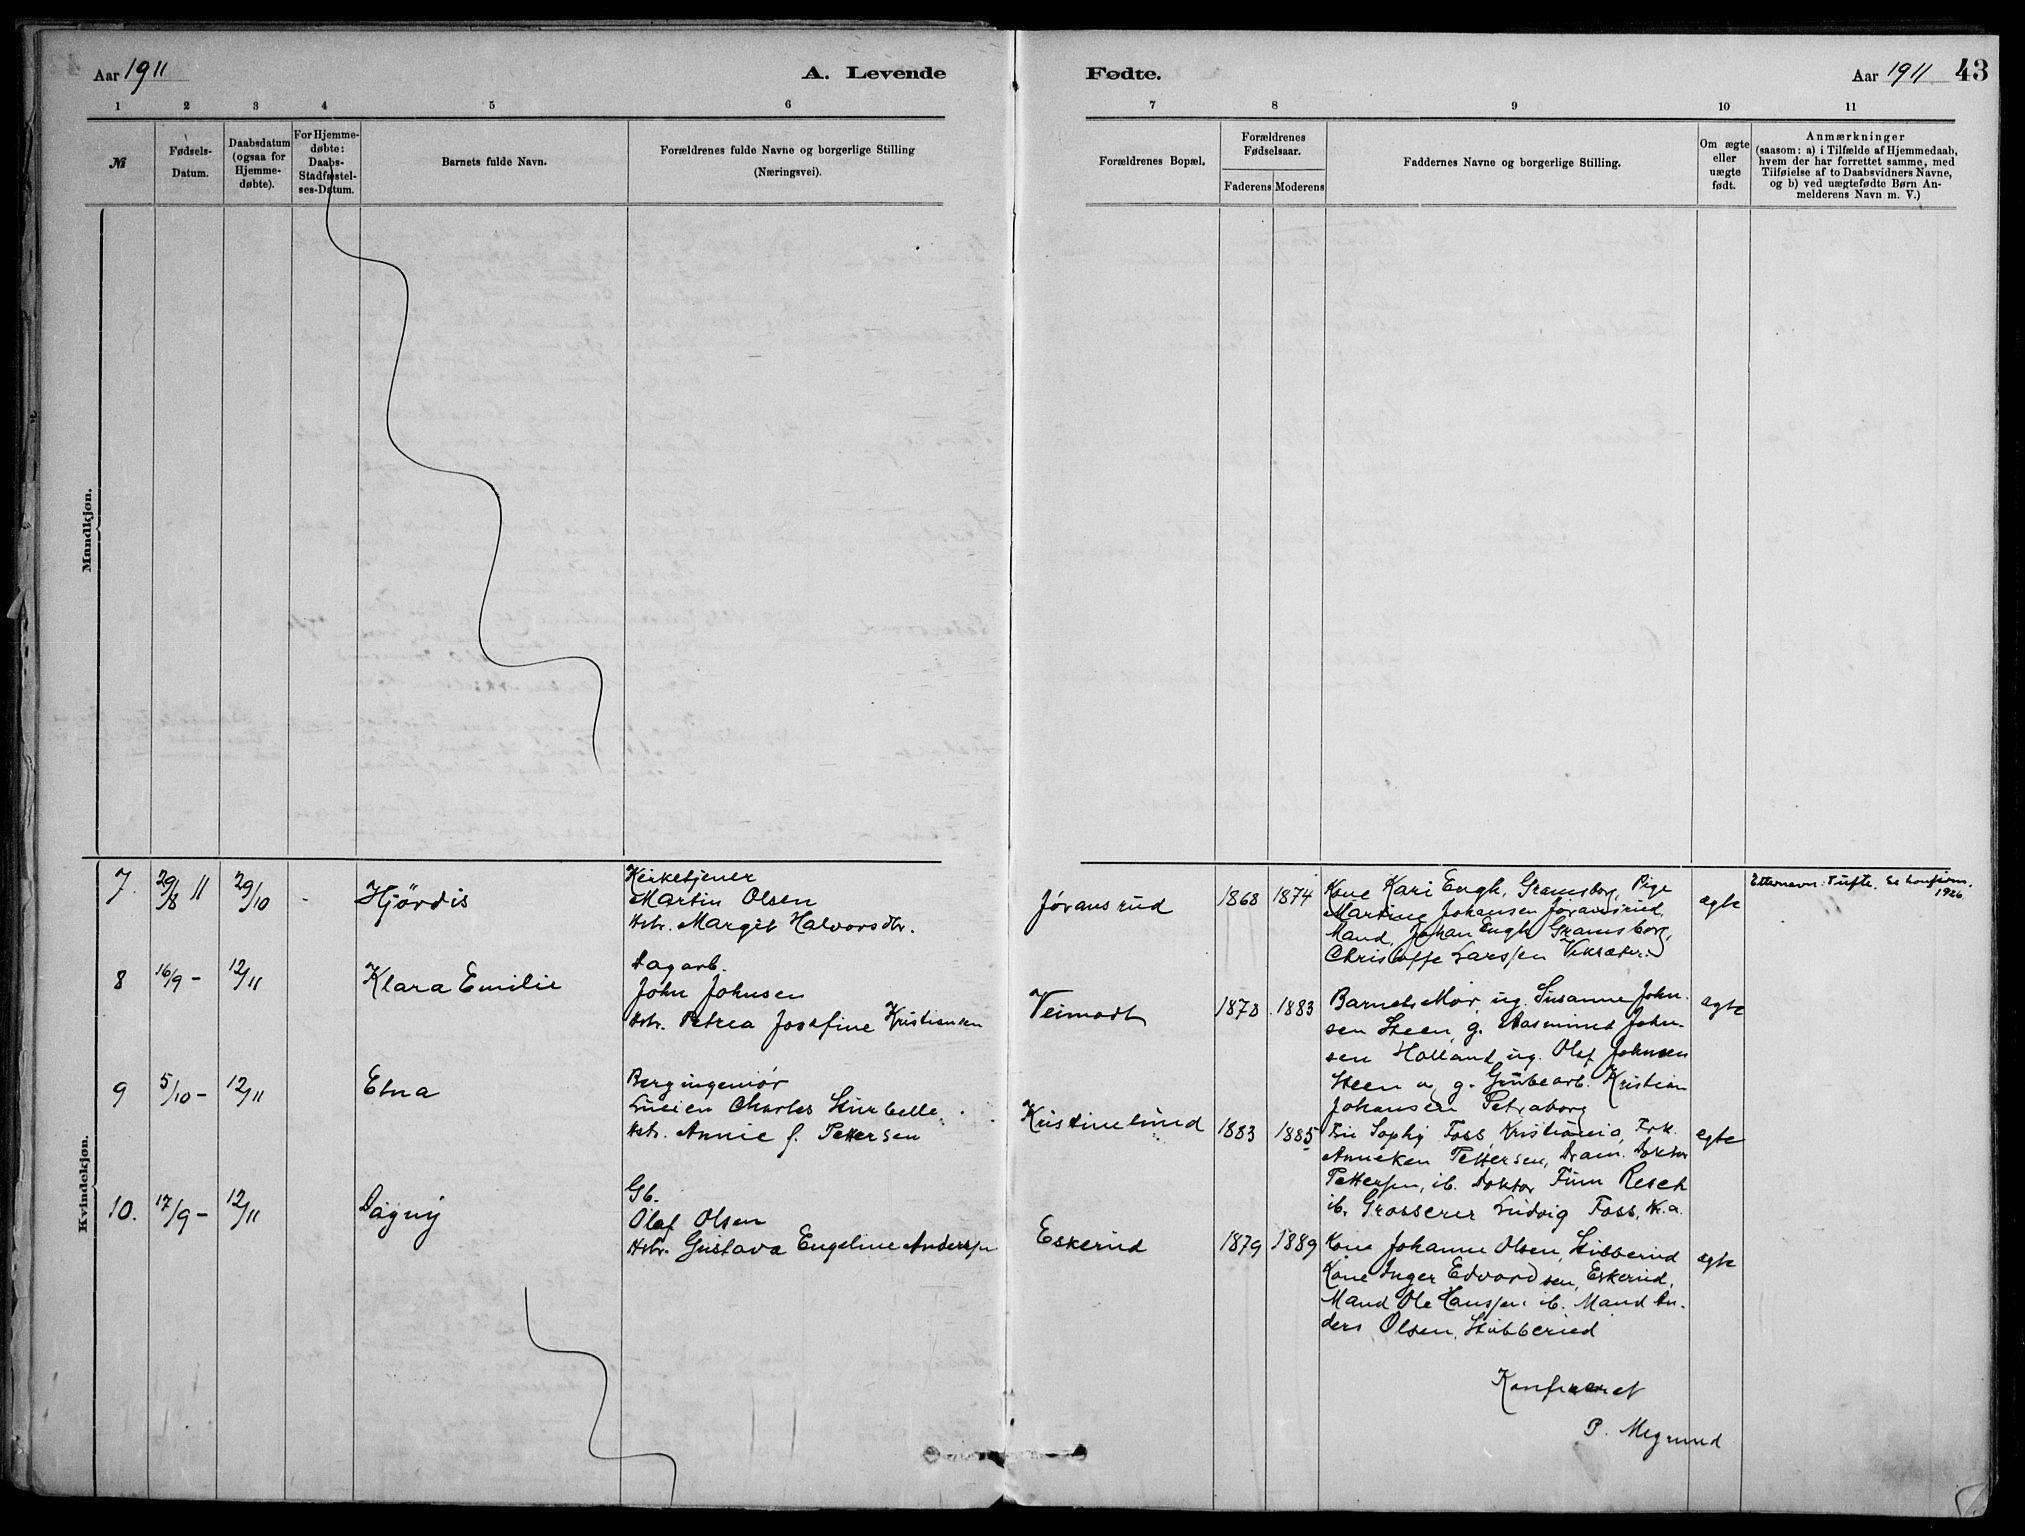 Aar 1911
A. Levende
Fødte.
Aar 1911
43
1 2 3 4 5 6 7 8 9 10 11
№
Fødsels-
Datum.
Daabsdatum
(ogsaa for
Hjemme-
døbte).
For Hjemme-
døbte:
Daabs-
Stadfæstel-
ses-Datum.
Barnets fulde Navn.
Forældrenes fulde Navne og borgerlige Stilling
(Næringsvei).
Forældrenes Bopæl.
Forældrenes
Fødselsaar.
Faderens Moderens
Faddernes Navne og borgerlige Stilling.
Om ægte
eller
uægte
født.
Anmærkninger
(saasom: a) i Tilfælde af Hjemmedaab,
hvem der har forrettet samme, med
Tilføielse af to Daabsvidners Navne,
og b) ved uægtefødte Børn An-
melderens Navn m. V.)
Mandkjøn.
Kvindekjøn.
7. 29/8 11 29/10 - Hjördis
Kirketjener
Martin Olsen
Hstr. Margit Halvorsdtr.
Jøransrud
1868 1874
Kone Kari Engh, Gramsborg, Pige
Martine Johansen Jøransrud,
Mand, Johan Engh Gramsborg,
Christoffe Larssen
ægte
Etternavn: Tufte. Se konfirm.
1926
8 16/9 - 12/11 Klara Emilie
Dagarb.
John Johnsen
Hstr. Petrea Josefine Kristiansen
Veimodt
1878 1883
Barnets Mor, ug. Susanne John-
sen Steen, g. Aasmund John-
sen Holland, ug. Olaf Johnsen
Steen og g. Grubearb. Kristian
Johansen Petraborg
ægte
9 5/10 - 12/11 Etna
Bergingeniør
Lucien Charles
Hstr. Annie f. Pettersen
Kristinelund
1883 1885
Fru Sophy Foss, Kristiania, Frk.
Anneken Pettersen, Dram. Doktor
Pettersen, ib. Doktor Finn Resch
ib. Grosserer Ludvig Foss, Kr.a.
ægte
10. 17/9 - 12/11 Dagny
Gb.
Olaf Olsen
Hstr. Gustava Engeline Andersen
Eskerud
1879 1889
Kone Johanne Olsen, Stubberud
Kone Inger Edvardsen, Eskerud,
Mand Ole Hanssen ib. Mand An-
ders Olsen, Stubberud
ægte
Konfereret
P.